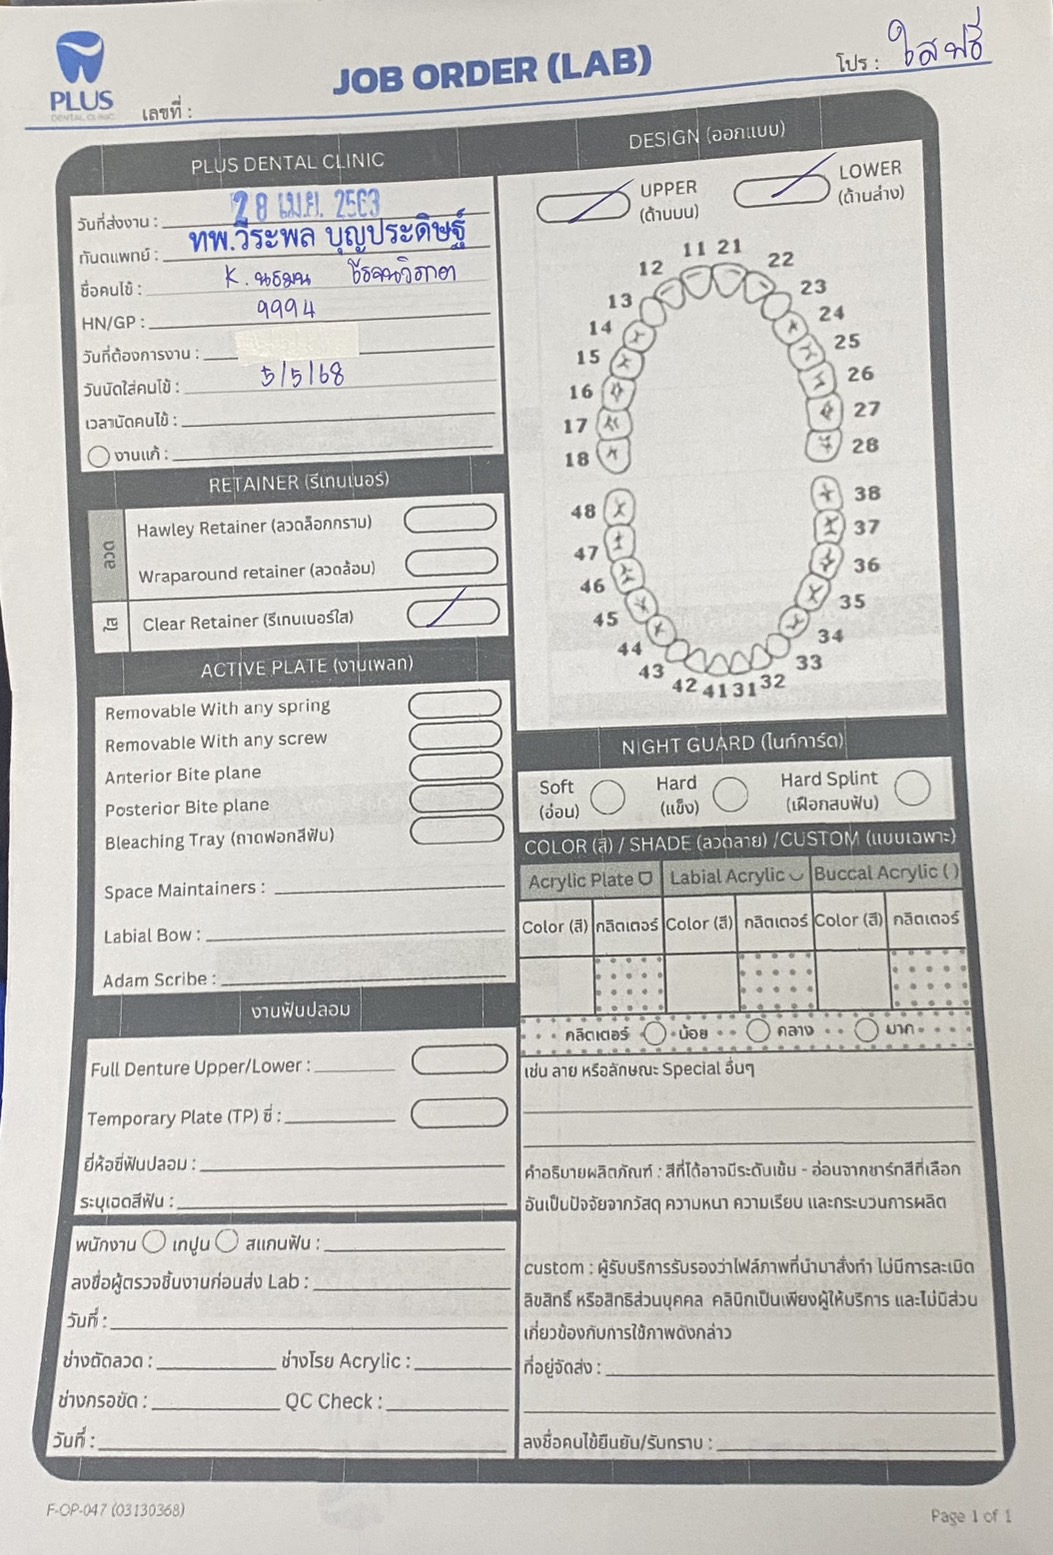 PLUS
DENTAL CLINIC
เลขที่ :
JOB ORDER (LAB)
โปร : ใสฟรี
PLUS DENTAL CLINIC
วันที่ส่งงาน : 28 เม.ย. 2563
ทันตแพทย์ : ทพ.วีระพล บุญประดิษฐ์
ชื่อคนไข้ : K.
HN/GP : 9994
วันที่ต้องการงาน :
วันนัดใส่คนไข้ : 5/5/68
เวลานัดคนไข้ :
งานแก้ :
RETAINER (รีเทนเนอร์)
ลวด
Hawley Retainer (ลวดล็อกกราม)
Wraparound retainer (ลวดล้อม)
ใส
Clear Retainer (รีเทนเนอร์ใส)
ACTIVE PLATE (งานเพลท)
Removable With any spring
Removable With any screw
Anterior Bite plane
Posterior Bite plane
Bleaching Tray (ถาดฟอกสีฟัน)
Space Maintainers :
Labial Bow :
Adam Scribe :
งานฟันปลอม
Full Denture Upper/Lower :
Temporary Plate (TP) ซี่ :
ยี่ห้อซี่ฟันปลอม :
ระบุเฉดสีฟัน :
พนักงาน เทปูน สแกนฟัน :
ลงชื่อผู้ตรวจชิ้นงานก่อนส่ง Lab :
วันที่ :
ช่างดัดลวด : ช่างโรย Acrylic :
ช่างกรอขัด : QC Check :
วันที่ :
DESIGN (ออกแบบ)
UPPER
(ด้านบน)
LOWER
(ด้านล่าง)
11 21
12 22
13 23
14 24
15 25
16 26
17 27
18 28
48 38
47 37
46 36
45 35
44 34
43 33
42 41 31 32
NIGHT GUARD (ไนท์การ์ด)
Soft
(อ่อน)
Hard
(แข็ง)
Hard Splint
(เฝือกสบฟัน)
COLOR (สี) / SHADE (ลวดลาย) /CUSTOM (แบบเฉพาะ)
Acrylic Plate Labial Acrylic Buccal Acrylic ( )
Color (สี) กลิตเตอร์ Color (สี) กลิตเตอร์ Color (สี) กลิตเตอร์
กลิตเตอร์ น้อย กลาง มาก
เช่น ลาย หรือลักษณะ Special อื่นๆ
คำอธิบายผลิตภัณฑ์ : สีที่ได้อาจมีระดับเข้ม - อ่อนจากชาร์ทสีที่เลือก
อันเป็นปัจจัยจากวัสดุ ความหนา ความเรียบ และกระบวนการผลิต
custom : ผู้รับบริการรับรองว่าไฟล์ภาพที่นำมาสั่งทำ ไม่มีการละเมิด
ลิขสิทธิ์ หรือสิทธิส่วนบุคคล คลินิกเป็นเพียงผู้ให้บริการ และไม่มีส่วน
เกี่ยวข้องกับการใช้ภาพดังกล่าว
ที่อยู่จัดส่ง :
ลงชื่อคนไข้ยืนยัน/รับทราบ :
F-OP-047 (03130368)
Page 1 of 1